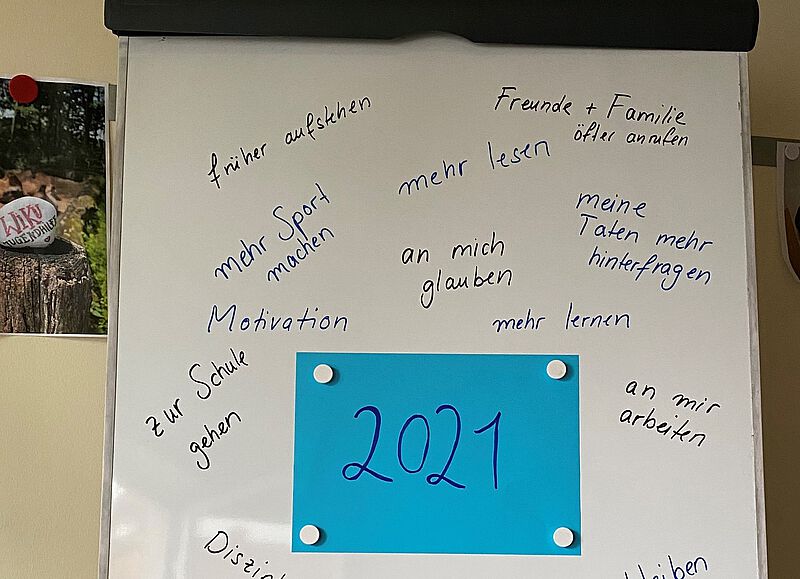 Freunde + Familie
öfter anrufen
früher aufstehen
mehr lesen
mehr Sport
machen
meine
Taten mehr
hinterfragen
an mich
glauben
Motivation
mehr lernen
zur Schule
gehen
an mir
arbeiten
2021
WIKU